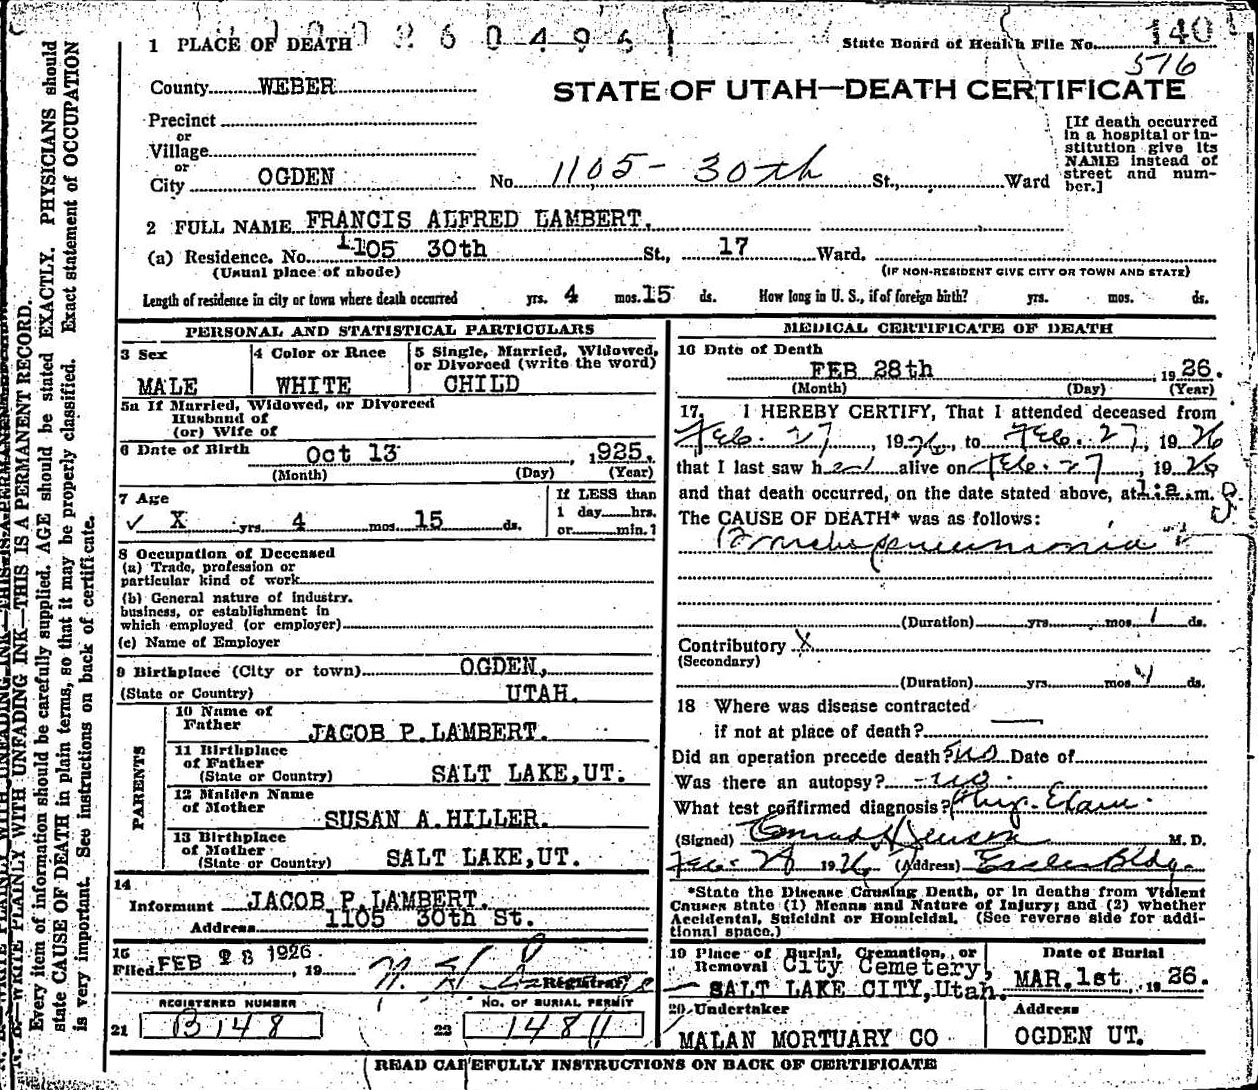 1 PLACE OF DEATH 260496
State Board of Health File No. 140
516
County WEBER
STATE OF UTAH—DEATH CERTIFICATE
Precinct
or
Village
or
City OGDEN No. 1105 - 30th St., Ward
[If death occurred
in a hospital or in-
stitution give its
NAME instead of
street and num-
ber.]
2 FULL NAME FRANCIS ALFRED LAMBERT.
(a) Residence. No. 1105 30th St., 17 Ward.
(Usual place of abode) (IF NON-RESIDENT GIVE CITY OR TOWN AND STATE)
Length of residence in city or town where death occurred yrs. 4 mos. 15 ds. How long in U. S., if of foreign birth? yrs. mos. ds.
PERSONAL AND STATISTICAL PARTICULARS
3 Sex 4 Color or Race 5 Single, Married, Widowed,
or Divorced (write the word)
MALE WHITE CHILD
5a If Married, Widowed, or Divorced
Husband of
(or) Wife of
6 Date of Birth Oct 13, 1925.
(Month) (Day) (Year)
7 Age If LESS than
X yrs. 4 mos. 15 ds. 1 day hrs.
or min.1
8 Occupation of Deceased
(a) Trade, profession or
particular kind of work
(b) General nature of industry.
business, or establishment in
which employed (or employer)
(c) Name of Employer
9 Birthplace (City or town) OGDEN,
(State or Country) UTAH.
PARENTS
10 Name of
Father JACOB P. LAMBERT.
11 Birthplace
of Father
(State or Country) SALT LAKE, UT.
12 Maiden Name
of Mother SUSAN A. HILLER.
13 Birthplace
of Mother
(State or Country) SALT LAKE, UT.
14
Informant JACOB P. LAMBERT.
Address 1105 30th St.
15
Filed FEB 28 1926, 19
Registrar
REGISTERED NUMBER NO. OF BURIAL PERMIT
21 B148 22 14811
MEDICAL CERTIFICATE OF DEATH
16 Date of Death
FEB 28th, 1926.
(Month) (Day) (Year)
17. I HEREBY CERTIFY, That I attended deceased from
Feb. 27, 1926, to Feb. 27, 1926
that I last saw h alive on Feb. 27, 1926
and that death occurred, on the date stated above, at 1:a.m.
The CAUSE OF DEATH* was as follows:
Broncho pneumonia
(Duration) yrs. mos. 1 ds.
Contributory X
(Secondary)
(Duration) yrs. mos. ds.
18 Where was disease contracted
if not at place of death?
Did an operation precede death? no Date of
Was there an autopsy? - no -
What test confirmed diagnosis? Phys. Exam.
(Signed) Conrad H Jenson M. D.
Feb. 28 1926 (Address) Eccles Bldg.
*State the Disease Causing Death, or in deaths from Violent
Causes state (1) Means and Nature of Injury; and (2) whether
Accidental, Suicidal or Homicidal. (See reverse side for addi-
tional space.)
19 Place of Burial, Cremation, or Date of Burial
Removal City Cemetery,
SALT LAKE CITY, Utah. MAR. 1st 1926.
20 Undertaker Address
MALAN MORTUARY CO OGDEN UT.
READ CAREFULLY INSTRUCTIONS ON BACK OF CERTIFICATE
N. B. WRITE PLAINLY WITH UNFADING INK—THIS IS A PERMANENT RECORD.
Every item of information should be carefully supplied. AGE should be stated EXACTLY. PHYSICIANS should
state CAUSE OF DEATH in plain terms, so that it may be properly classified. Exact statement of OCCUPATION
is very important. See instructions on back of certificate.